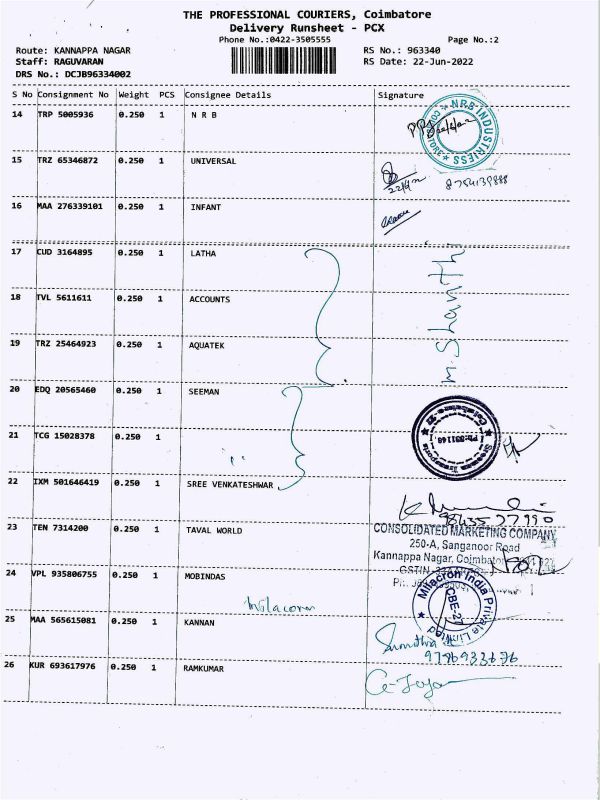 THE PROFESSIONAL COURIERS, Coimbatore
Delivery Runsheet - PCX
Phone No.:0422-3505555
Page No.:2
Route: KANNAPPA NAGAR
RS No.: 963340
Staff: RAGUVARAN
RS Date: 22-Jun-2022
DRS No.: DCJB96334002
S No Consignment No Weight PCS Consignee Details Signature
14 TRP 5005936 0.250 1 N R B
NRB INDUSTRIESS
STORE
15 TRZ 65346872 0.250 1 UNIVERSAL
8754139888
16 MAA 276339101 0.250 1 INFANT
17 CUD 3164895 0.250 1 LATHA
M. Shanthi
18 TVL 5611611 0.250 1 ACCOUNTS
19 TRZ 25464923 0.250 1 AQUATEK
20 EDQ 20565460 0.250 1 SEEMAN
21 TCG 15028378 0.250 1
22 IXM 501646419 0.250 1 SREE VENKATESHWAR
98435 27990
23 TEN 7314200 0.250 1 TAVAL WORLD
CONSOLIDATED MARKETING COMPANY
250-A, Sanganoor Road
Kannappa Nagar, Coimbatore
24 VPL 935806755 0.250 1 MOBINDAS
Milacron India Private Limited
CBE-27
25 MAA 565615081 0.250 1 KANNAN
26 KUR 693617976 0.250 1 RAMKUMAR